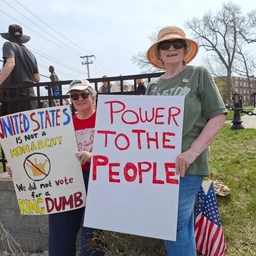 UNITED STATES
IS NOT A
MONARCHY
We did not vote
for a
KING DUMB
POWER
TO THE
PEOPLE